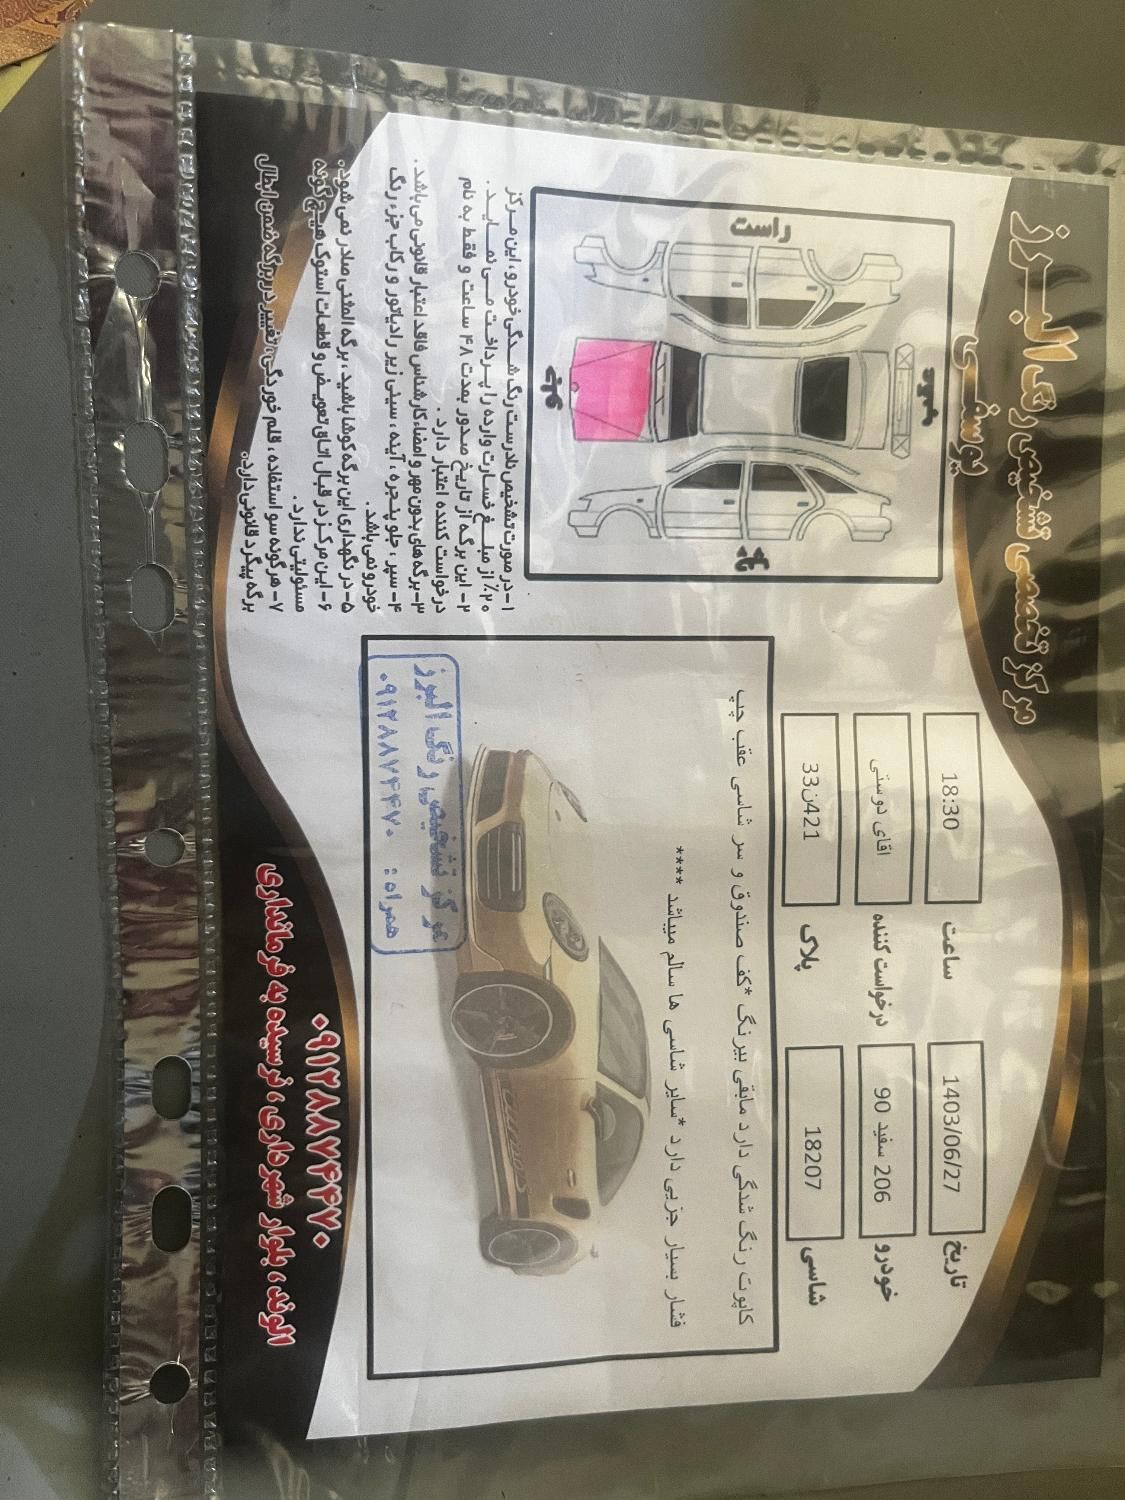 مرکز تخصصی تشخیص رنگ البرز
یوسفی
تاریخ 1403/06/27 ساعت 18:30
خودرو 206 سفید 90 درخواست کننده اقای دوستی
شاسی 18207 پلاک 33ن421
کاپوت رنگ شدگی دارد مابقی بیرنگ *کف صندوق و سر شاسی عقب چپ
فشار بسیار جزیی دارد *سایر شاسی ها سالم میباشد ****
مرکز تشخیص رنگ البرز
همراه: ۰۹۱۲۸۸۷۴۴۷۰
راست
کاپوت
صندوق
چپ
۱- در صورت تشخیص نادرست رنگ شدگی خودرو، این مرکز
۲۰٪ از مبلغ خسارت وارده را پرداخت می نماید.
۲- این برگه از تاریخ صدور بمدت ۴۸ ساعت و فقط به نام
درخواست کننده اعتبار دارد.
۳- برگه های بدون مهر و امضاء کارشناس فاقد اعتبار قانونی می باشد.
۴- سپر، جلو پنجره، آینه، سینی زیر رادیاتور و رکاب جزء رنگ
خودرو نمی باشد.
۵- در نگهداری این برگه کوشا باشید، برگه المثنی صادر نمی شود.
۶- این مرکز در قبال اتاق تعویض و قطعات استوک هیچ گونه
مسئولیتی ندارد.
۷- هرگونه سو استفاده، قلم خوردگی، تغییر در برگه ضمن ابطال
برگه پیگرد قانونی دارد.
۰۹۱۲۸۸۷۴۴۷۰
الوند، بلوار شهرداری، نرسیده به فرمانداری